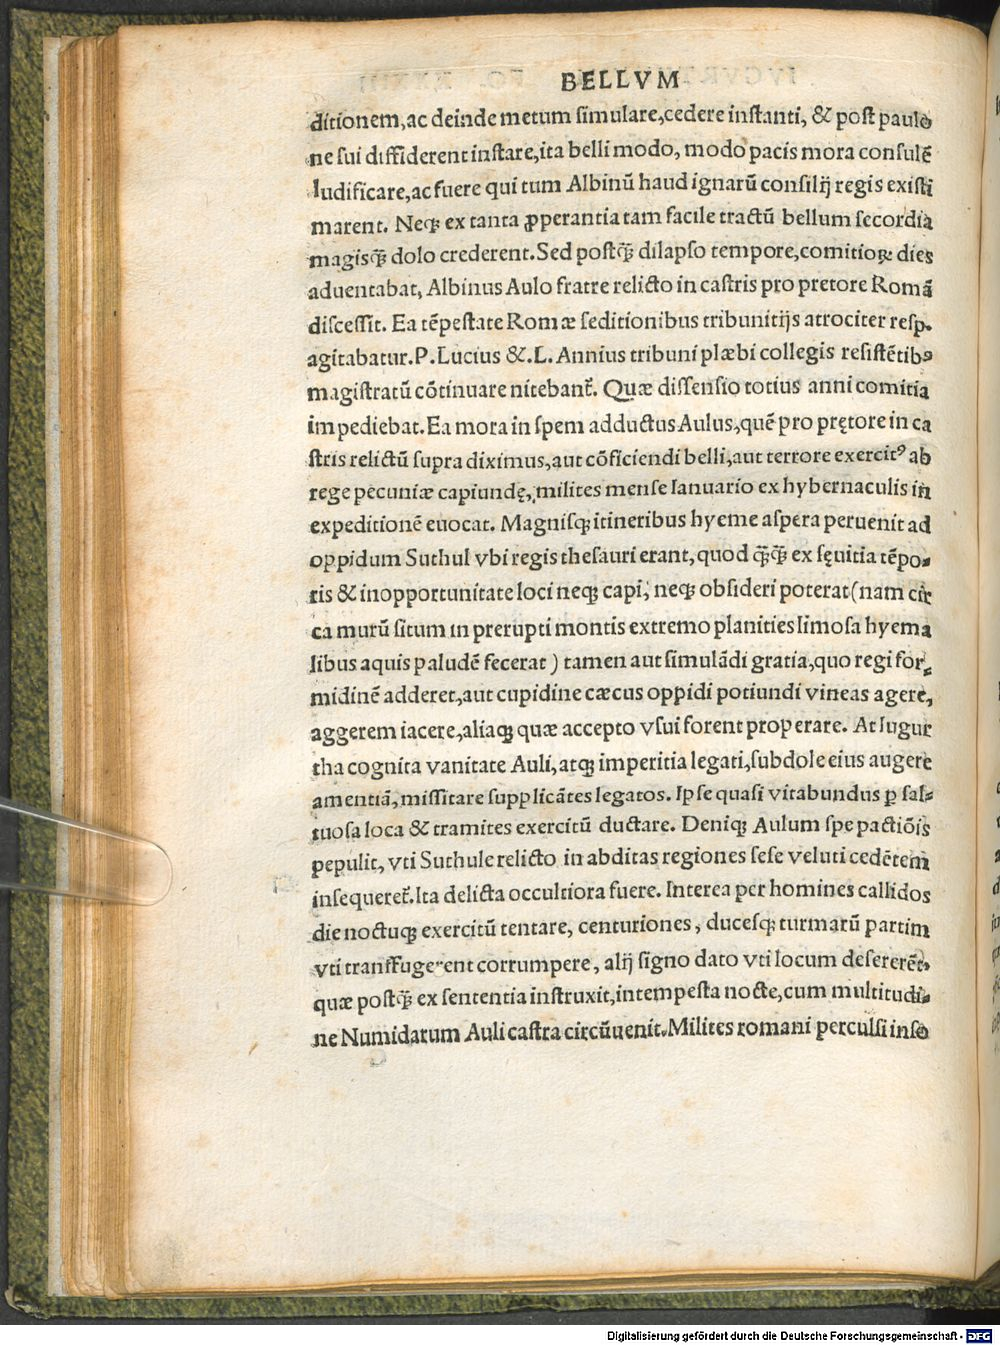 BELLVM
ditionem,ac deinde metum simulare,cedere instanti, & post paulo
ne sui diffiderent instare,ita belli modo, modo pacis mora consulē
ludificare,ac fuere qui tum Albinū haud ignarū consilij regis existi
marent. Neqꝫ ex tanta ꝓperantia tam facile tractū bellum secordia
magisq̄ꝫ dolo crederent.Sed postq̄ꝫ dilapso tempore,comitioꝝ dies
aduentabat, Albinus Aulo fratre relicto in castris pro pretore Romā
discessit. Ea tēpestate Romæ seditionibus tribunitijs atrociter resp.
agitabatur.P. Lucius &.L. Annius tribuni plæbi collegis resistētibꝰ
magistratū cōtinuare nitebant᷑. Quæ dissensio totius anni comitia
impediebat.Ea mora in spem adductus Aulus,quē pro prętore in ca
stris relictū supra diximus,aut cōficiendi belli,aut terrore exercitꝰ ab
rege pecuniæ capiundę,milites mense Ianuario ex hybernaculis in
expeditionē euocat. Magnisqꝫ itineribus hyeme aspera peruenit ad
oppidum Suthul vbi regis thesauri erant,quod q̄ꝫq̄ꝫ ex sęuitia tēpo-
ris & inopportunitate loci neqꝫ capi, neqꝫ obsideri poterat(nam cir
ca murū situm in prerupti montis extremo planities limosa hyema
libus aquis paludē fecerat ) tamen aut simulādi gratia,quo regi for-
midinē adderet,aut cupidine cæcus oppidi potiundi vineas agere,
aggerem iacere,aliaqꝫ quæ accepto vsui forent properare. At Iugur
tha cognita vanitate Auli,atqꝫ imperitia legati,subdole eius augere
amentiā,missitare supplicātes legatos. Ipse quasi vitabundus ꝑ sal-
tuosa loca & tramites exercitū ductare. Deniqꝫ Aulum spe pactiōis
pepulit, vti Suthule relicto in abditas regiones sese veluti cedētem
insequeret᷑.Ita delicta occultiora fuere. Interea per homines callidos
die noctuqꝫ exercitū tentare, centuriones, ducesqꝫ turmarū partim
vti transfugerent corrumpere, alij signo dato vti locum desererēt.
quæ postq̄ꝫ ex sententia instruxit,intempesta nocte,cum multitudi-
ne Numidarum Auli castra circūuenit.Milites romani perculsi inso
Digitalisierung gefördert durch die Deutsche Forschungsgemeinschaft - DFG